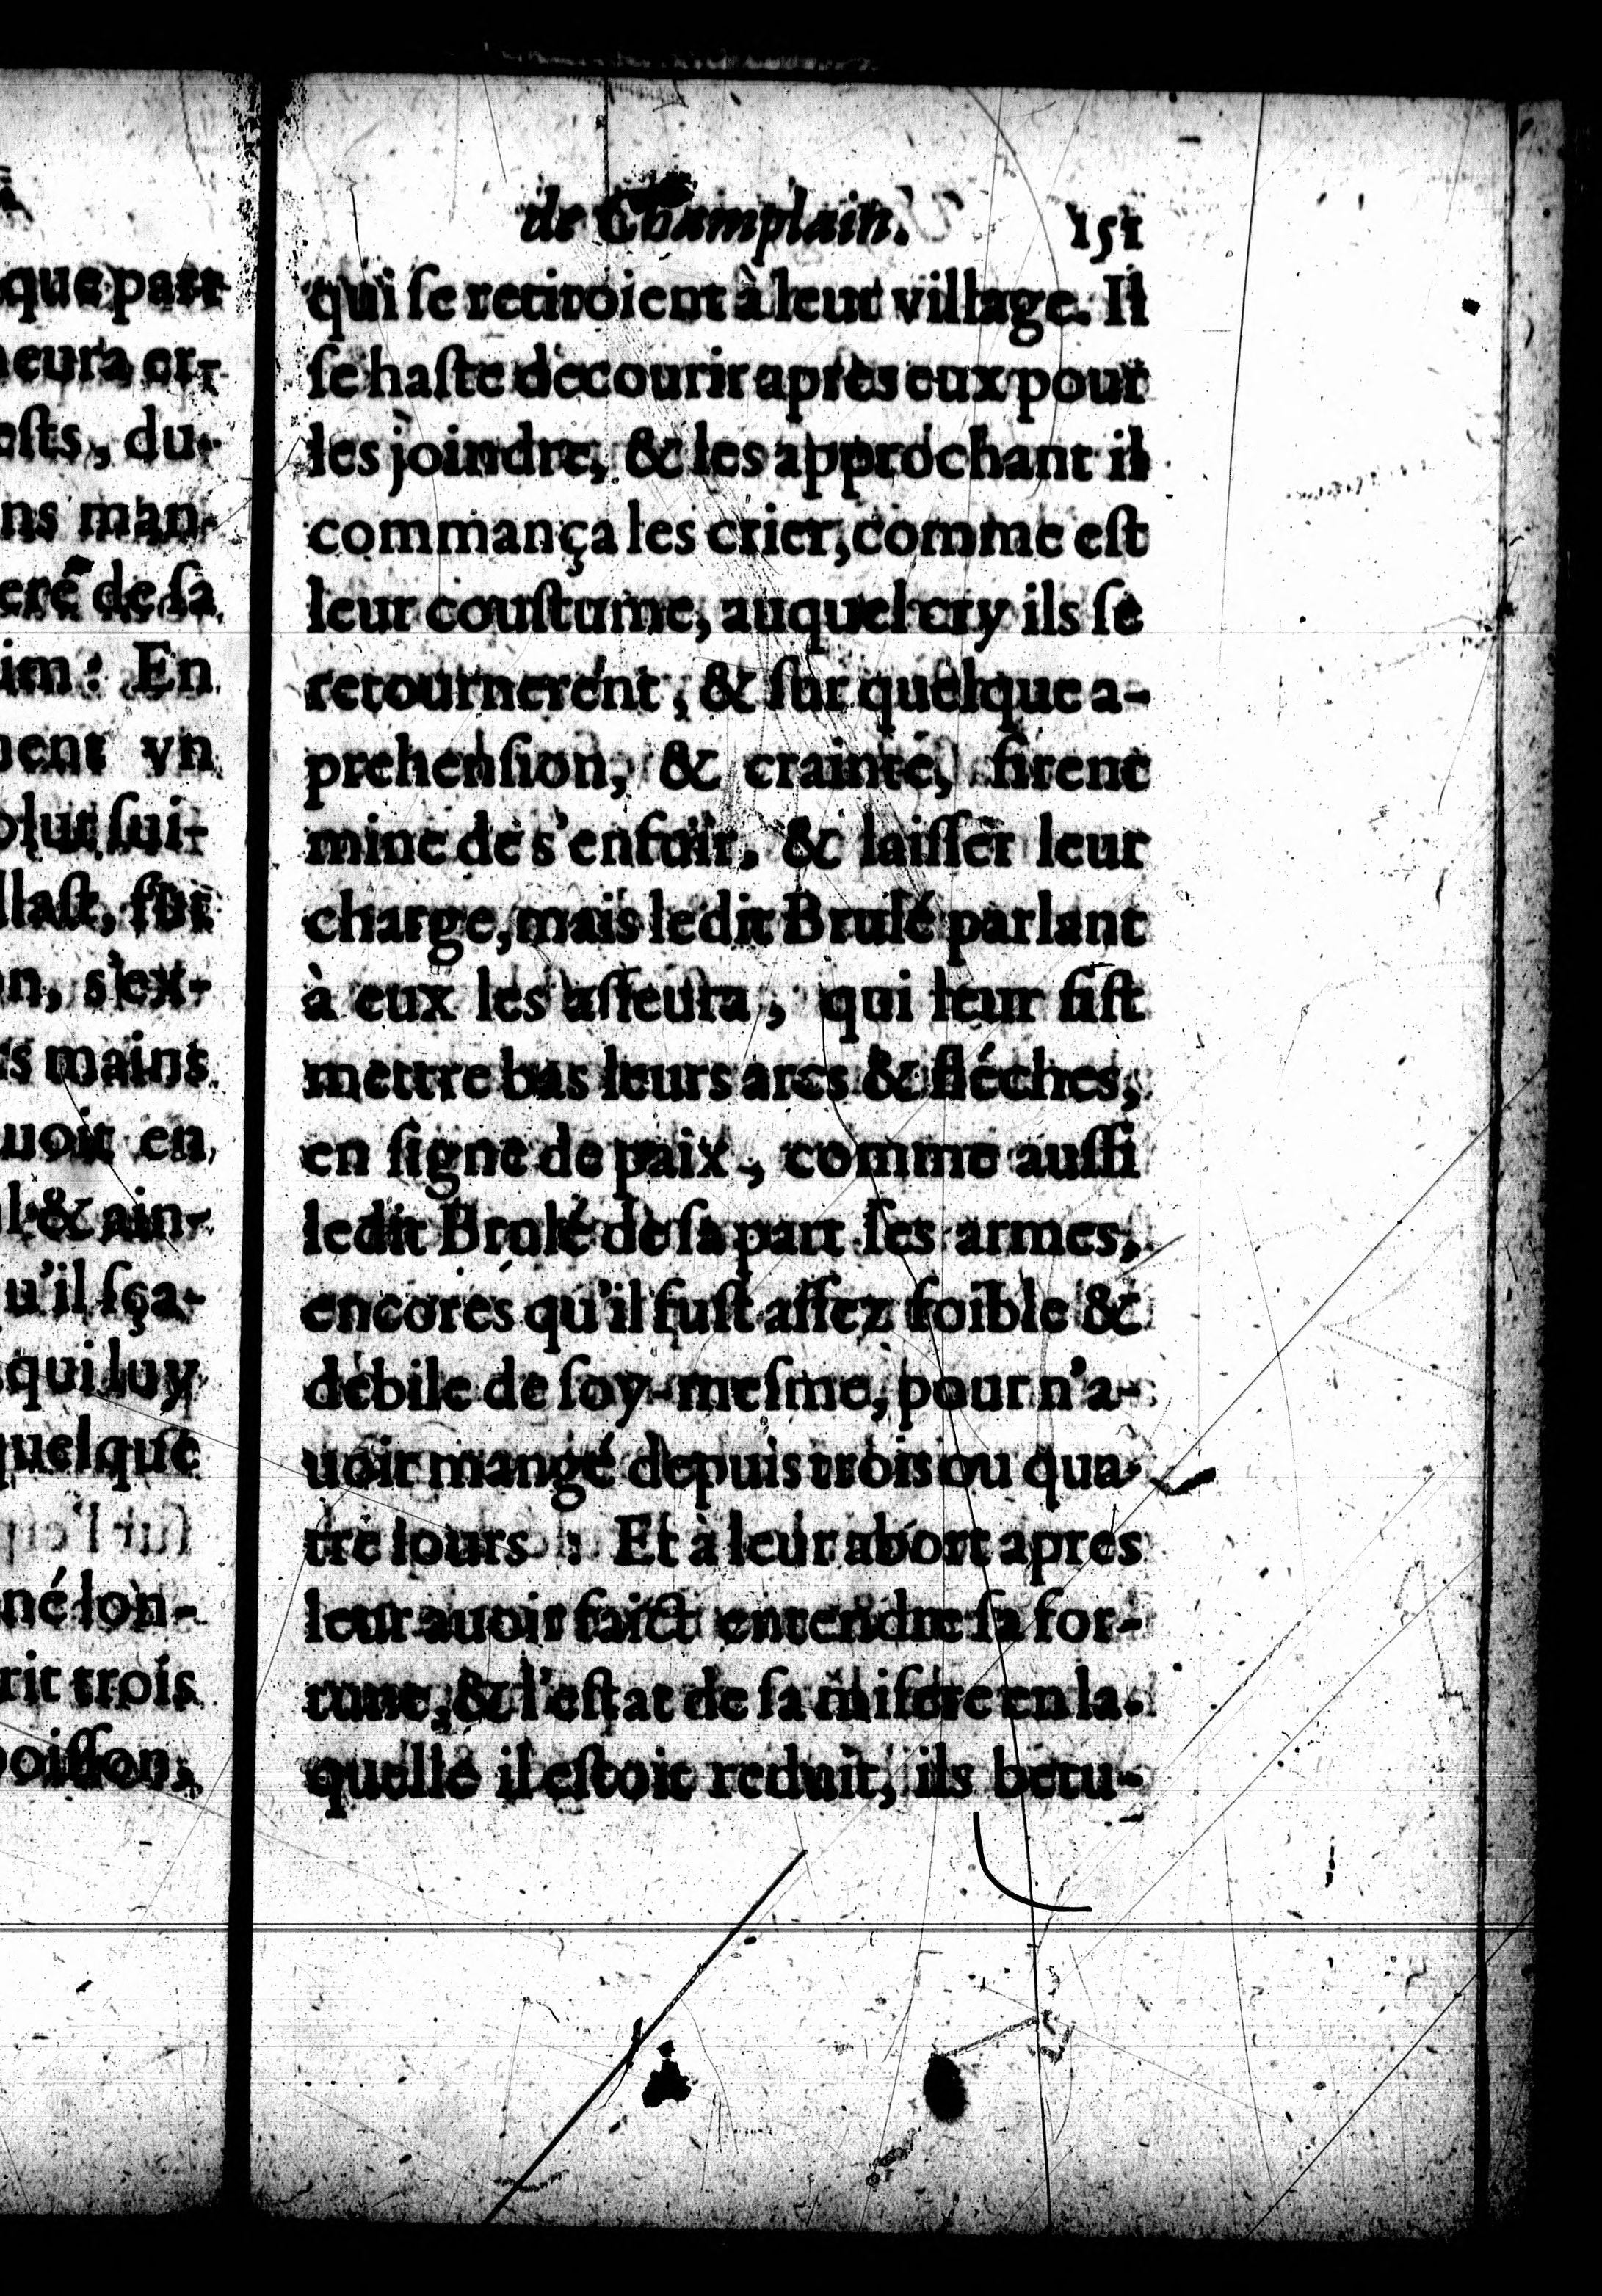 que part
neura er-
ests, du-
ns man-
eré de sa
im: En
nent vn
olut sui-
llast, fut
n, s'ex-
rs mains
uoit en
l & ain-
u'il sça-
qui luy
quelque
né lon-
rit trois
poisson,
de Champlain. 151
qui se retiroient à leur village. Il
se haste de courir apres eux pour
les joindre, & les approchant il
commança les crier, comme est
leur coustume, auquel cry ils se
retournerent, & sur quelque a-
prehension, & crainte, firent
mine de s'enfuïr, & laisser leur
charge, mais ledit Brulé parlant
à eux les asseura, qui leur fist
mettre bas leurs arcs & fléches,
en signe de paix, comme aussi
ledit Brulé de sa part ses armes,
encores qu'il fust assez foible &
debile de soy-mesme, pour n'a-
uoir mangé depuis trois ou qua-
tre iours : Et à leur abort apres
leur auoir faict entendre sa for-
tune, & l'estat de sa misere en la-
quelle il estoit reduit, ils betu-